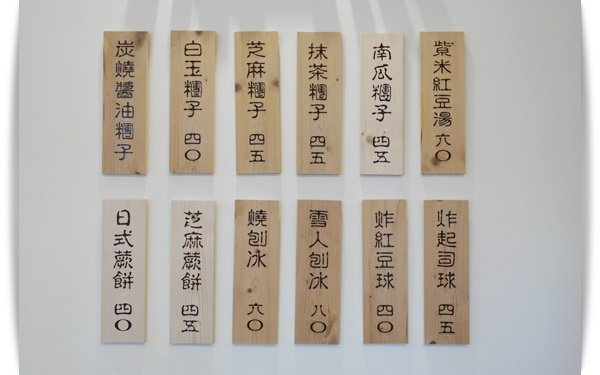 炭燒醬油糰子
白玉糰子 四〇
芝麻糰子 四五
抹茶糰子 四五
南瓜糰子 四五
紫米紅豆湯 六〇
日式蕨餅 四〇
芝麻蕨餅 四五
燒刨冰 六〇
雪人刨冰 八〇
炸紅豆球 四〇
炸起司球 四五